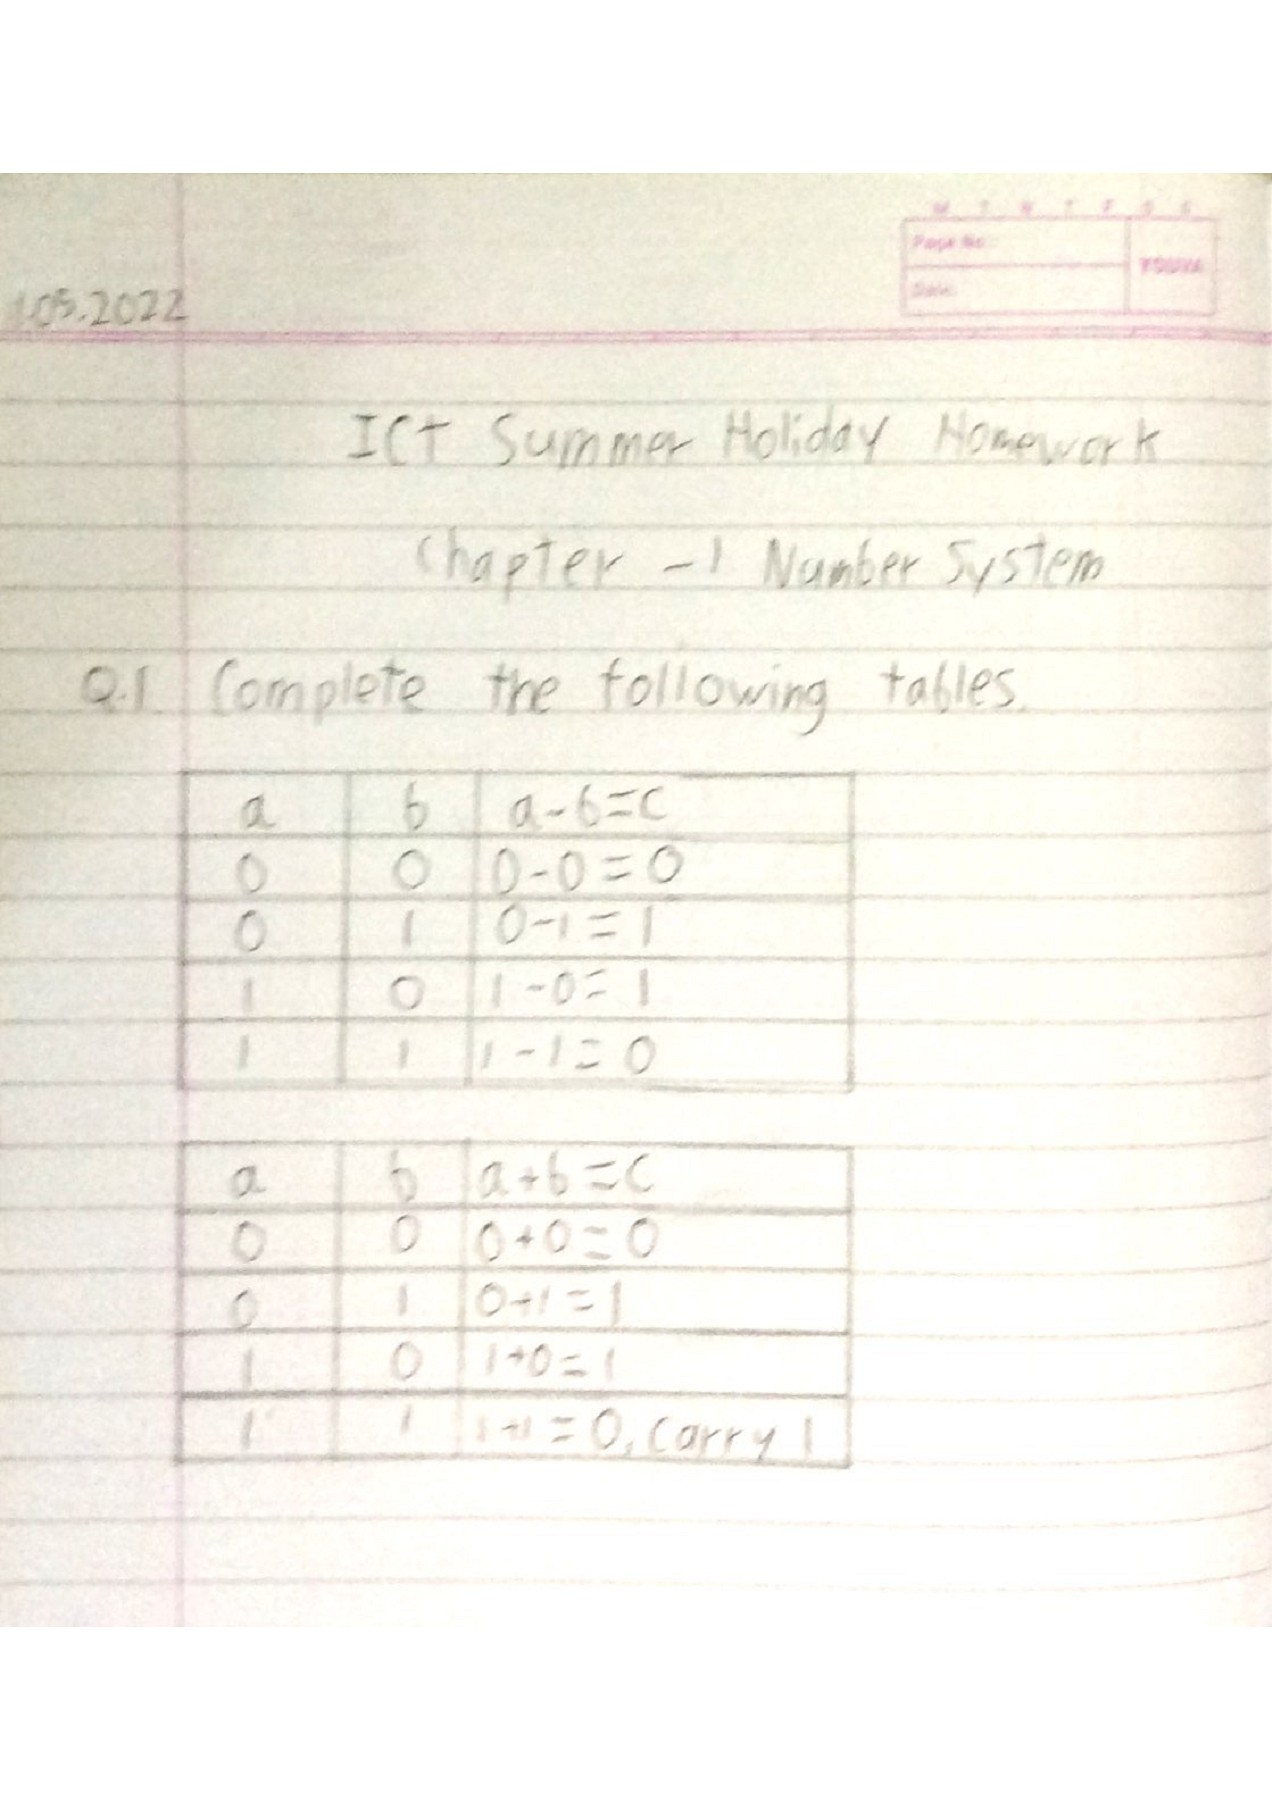 M T W T F S S
Page No.:
YOUVA
Date:
1.05.2022
ICT Summer Holiday Homework
Chapter -1 Number System
Q.1 Complete the following tables.
a b a-b=c
0 0 0-0=0
0 1 0-1=1
1 0 1-0=1
1 1 1-1=0
a b a+b=c
0 0 0+0=0
0 1 0+1=1
1 0 1+0=1
1 1 1+1=0, Carry 1